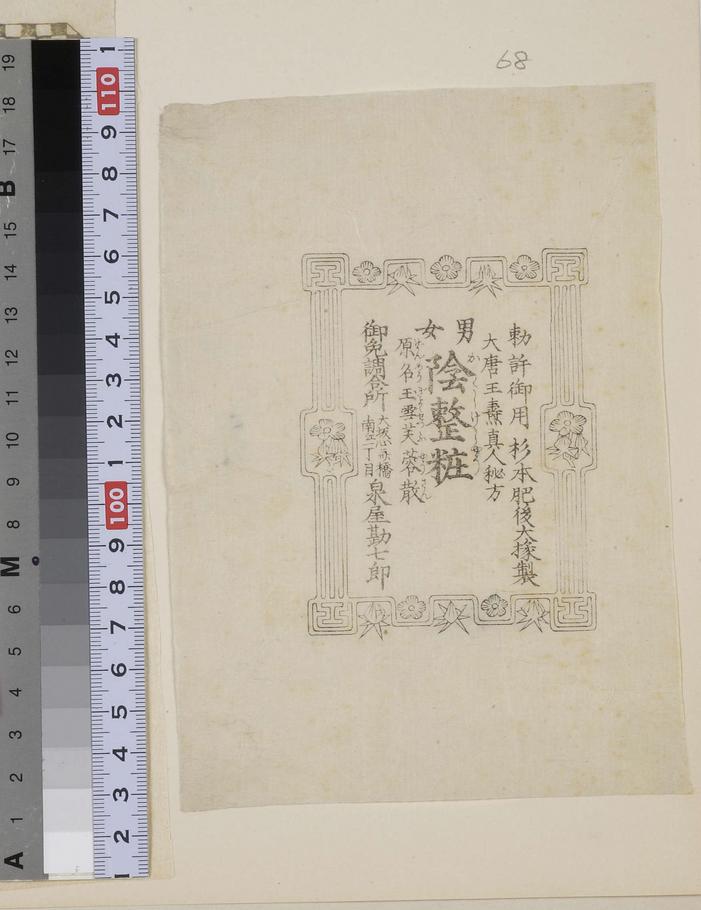 68
勅許御用 杉本肥後大掾製
大唐王燾真人秘方
男
女
陰整粧
原名玉雪芙蓉散
御免調合所
南二丁目
泉屋勘七郎
B 19 18 17 15 14 13 12 11 10 9 8 M 6 5 4 3 2 1 A
1 110 9 8 7 6 5 4 3 2 1 100 9 8 7 6 5 4 3 2 1